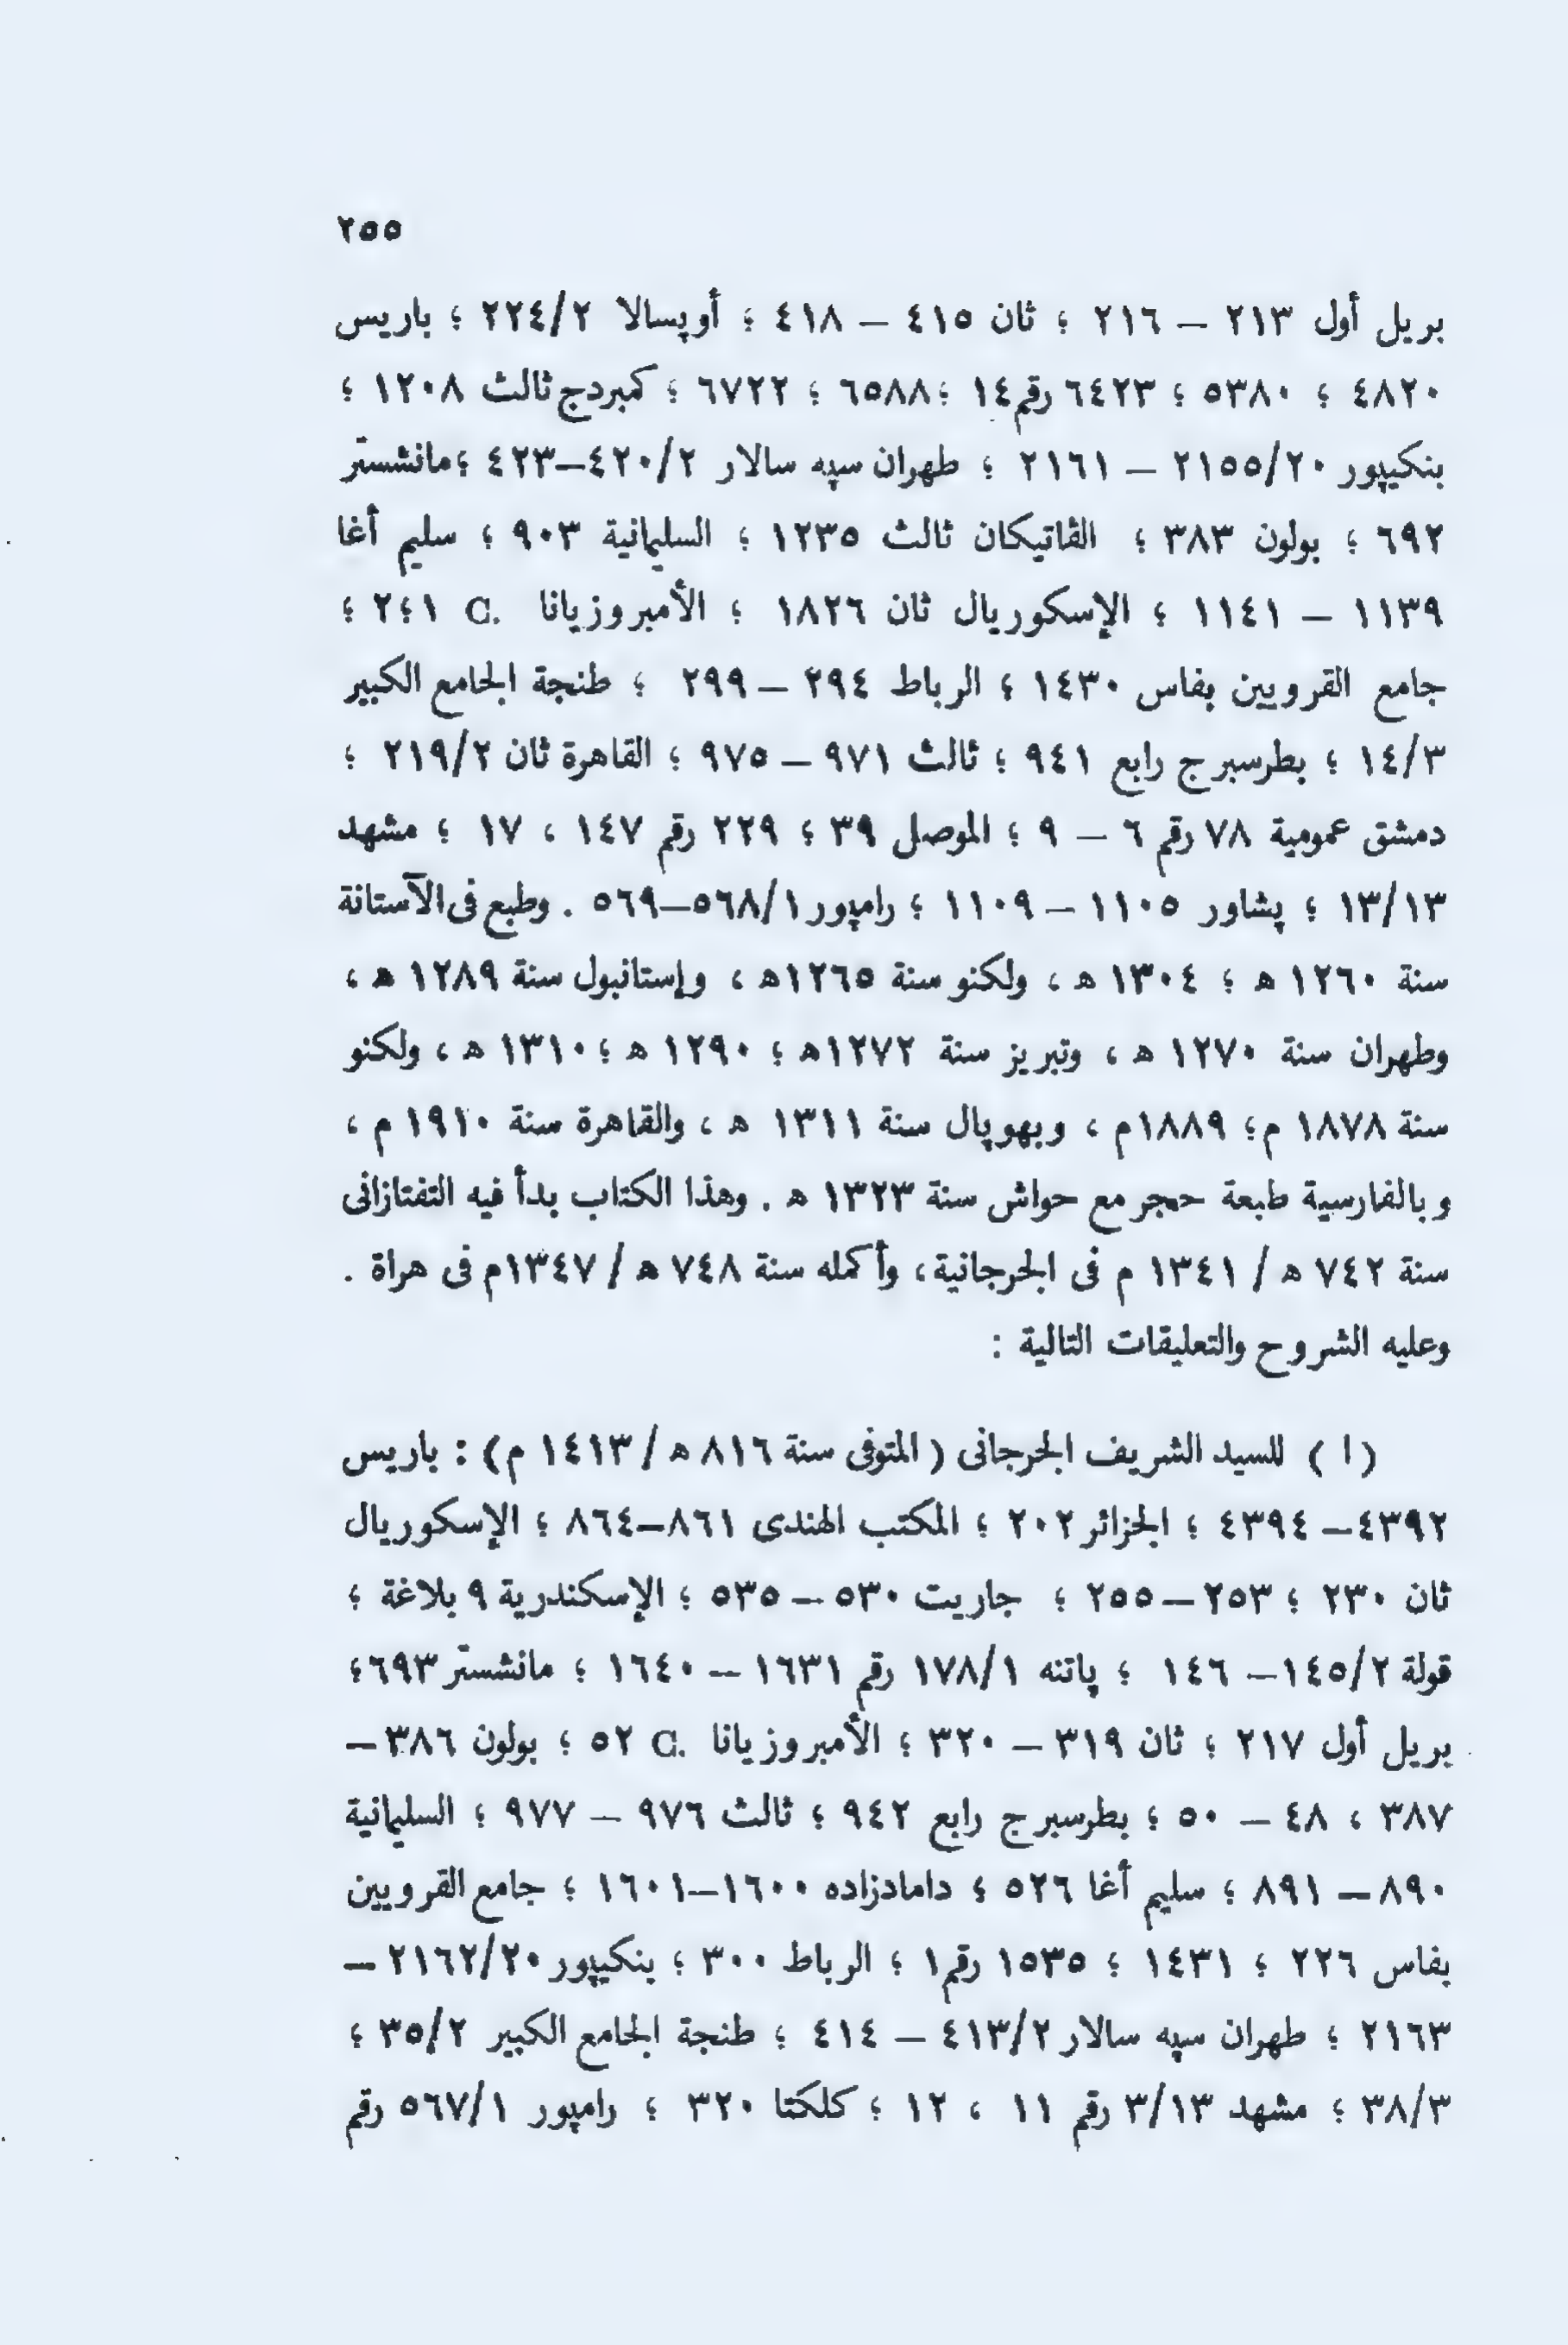 ٢٥٥
بريل أول ٢١٣ – ٢١٦ ؛ ثان ٤١٥ – ٤١٨ ؛ أوپسالا ٢/٢٢٤ ؛ باريس
٤٨٢٠ ؛ ٥٣٨٠ ؛ ٦٤٢٣ رقم ١٤ ؛ ٦٥٨٨ ؛ ٦٧٢٢ ؛ كمبردج ثالث ١٢٠٨ ؛
بنكيپور ٢٠/٢١٥٥ – ٢١٦١ ؛ طهران سپه سالار ٢/٤٢٠–٤٢٣ ؛ مانشستر
٦٩٢ ؛ بولون ٣٨٣ ؛ الڤاتيكان ثالث ١٢٣٥ ؛ السليمانية ٩٠٣ ؛ سليم أغا
١١٣٩ – ١١٤١ ؛ الإسكوريال ثان ١٨٢٦ ؛ الأمبروزيانا C. ١؛٢ ؛
جامع القرويين بفاس ١٤٣٠ ؛ الرباط ٢٩٤ – ٢٩٩ ؛ طنجة الجامع الكبير
١٤/٣ ؛ بطرسبرج رابع ٩٤١ ؛ ثالث ٩٧١ – ٩٧٥ ؛ القاهرة ثان ٢/٢١٩ ؛
دمشق عمومية ٧٨ رقم ٦ – ٩ ؛ الموصل ٣٩ ؛ ٢٢٩ رقم ١٤٧ ، ١٧ ؛ مشهد
١٣/١٣ ؛ پشاور ١١٠٥ – ١١٠٩ ؛ رامپور ١/٥٦٨–٥٦٩ . وطبع فى الآستانة
سنة ١٢٦٠ ه ؛ ١٣٠٤ ه ، ولكنو سنة ١٢٦٥ه ، وإستانبول سنة ١٢٨٩ ه ،
وطهران سنة ١٢٧٠ ه ، وتبريز سنة ١٢٧٢ه ؛ ١٢٩٠ ه ؛ ١٣١٠ ه ، ولكنو
سنة ١٨٧٨ م ؛ ١٨٨٩م ، وبهوپال سنة ١٣١١ ه ، والقاهرة سنة ١٩١٠ م ،
وبالفارسية طبعة حجر مع حواش سنة ١٣٢٣ ه . وهذا الكتاب بدأ فيه التفتازانى
سنة ٧٤٢ ه / ١٣٤١ م فى الجرجانية ، وأكمله سنة ٧٤٨ ه / ١٣٤٧م فى هراة .
وعليه الشروح والتعليقات التالية :
( ا ) للسيد الشريف الجرجانى ( المتوفى سنة ٨١٦ ه / ١٤١٣ م ) : باريس
٤٣٩٢– ٤٣٩٤ ؛ الجزائر ٢٠٢ ؛ المكتب الهندى ٨٦١–٨٦٤ ؛ الإسكوريال
ثان ٢٣٠ ؛ ٢٥٣–٢٥٥ ؛ جاريت ٥٣٠ – ٥٣٥ ؛ الإسكندرية ٩ بلاغة ؛
قولة ٢/١٤٥– ١٤٦ ؛ پاتنه ١/١٧٨ رقم ١٦٣١ – ١٦٤٠ ؛ مانشستر ٦٩٣ ؛
بريل أول ٢١٧ ؛ ثان ٣١٩ – ٣٢٠ ؛ الأمبروزيانا C. ٥٢ ؛ بولون ٣٨٦ –
٣٨٧ ، ٤٨ – ٥٠ ؛ بطرسبرج رابع ٩٤٢ ؛ ثالث ٩٧٦ – ٩٧٧ ؛ السليمانية
٨٩٠ – ٨٩١ ؛ سليم أغا ٥٢٦ ؛ دامادزاده ١٦٠٠–١٦٠١ ؛ جامع القرويين
بفاس ٢٢٦ ؛ ١٤٣١ ؛ ١٥٣٥ رقم ١ ؛ الرباط ٣٠٠ ؛ بنكيپور ٢٠/٢١٦٢ –
٢١٦٣ ؛ طهران سپه سالار ٢/٤١٣ – ٤١٤ ؛ طنجة الجامع الكبير ٣٥/٢ ؛
٣٨/٣ ؛ مشهد ٣/١٣ رقم ١١ ، ١٢ ؛ كلكتا ٣٢٠ ؛ رامپور ١/٥٦٧ رقم